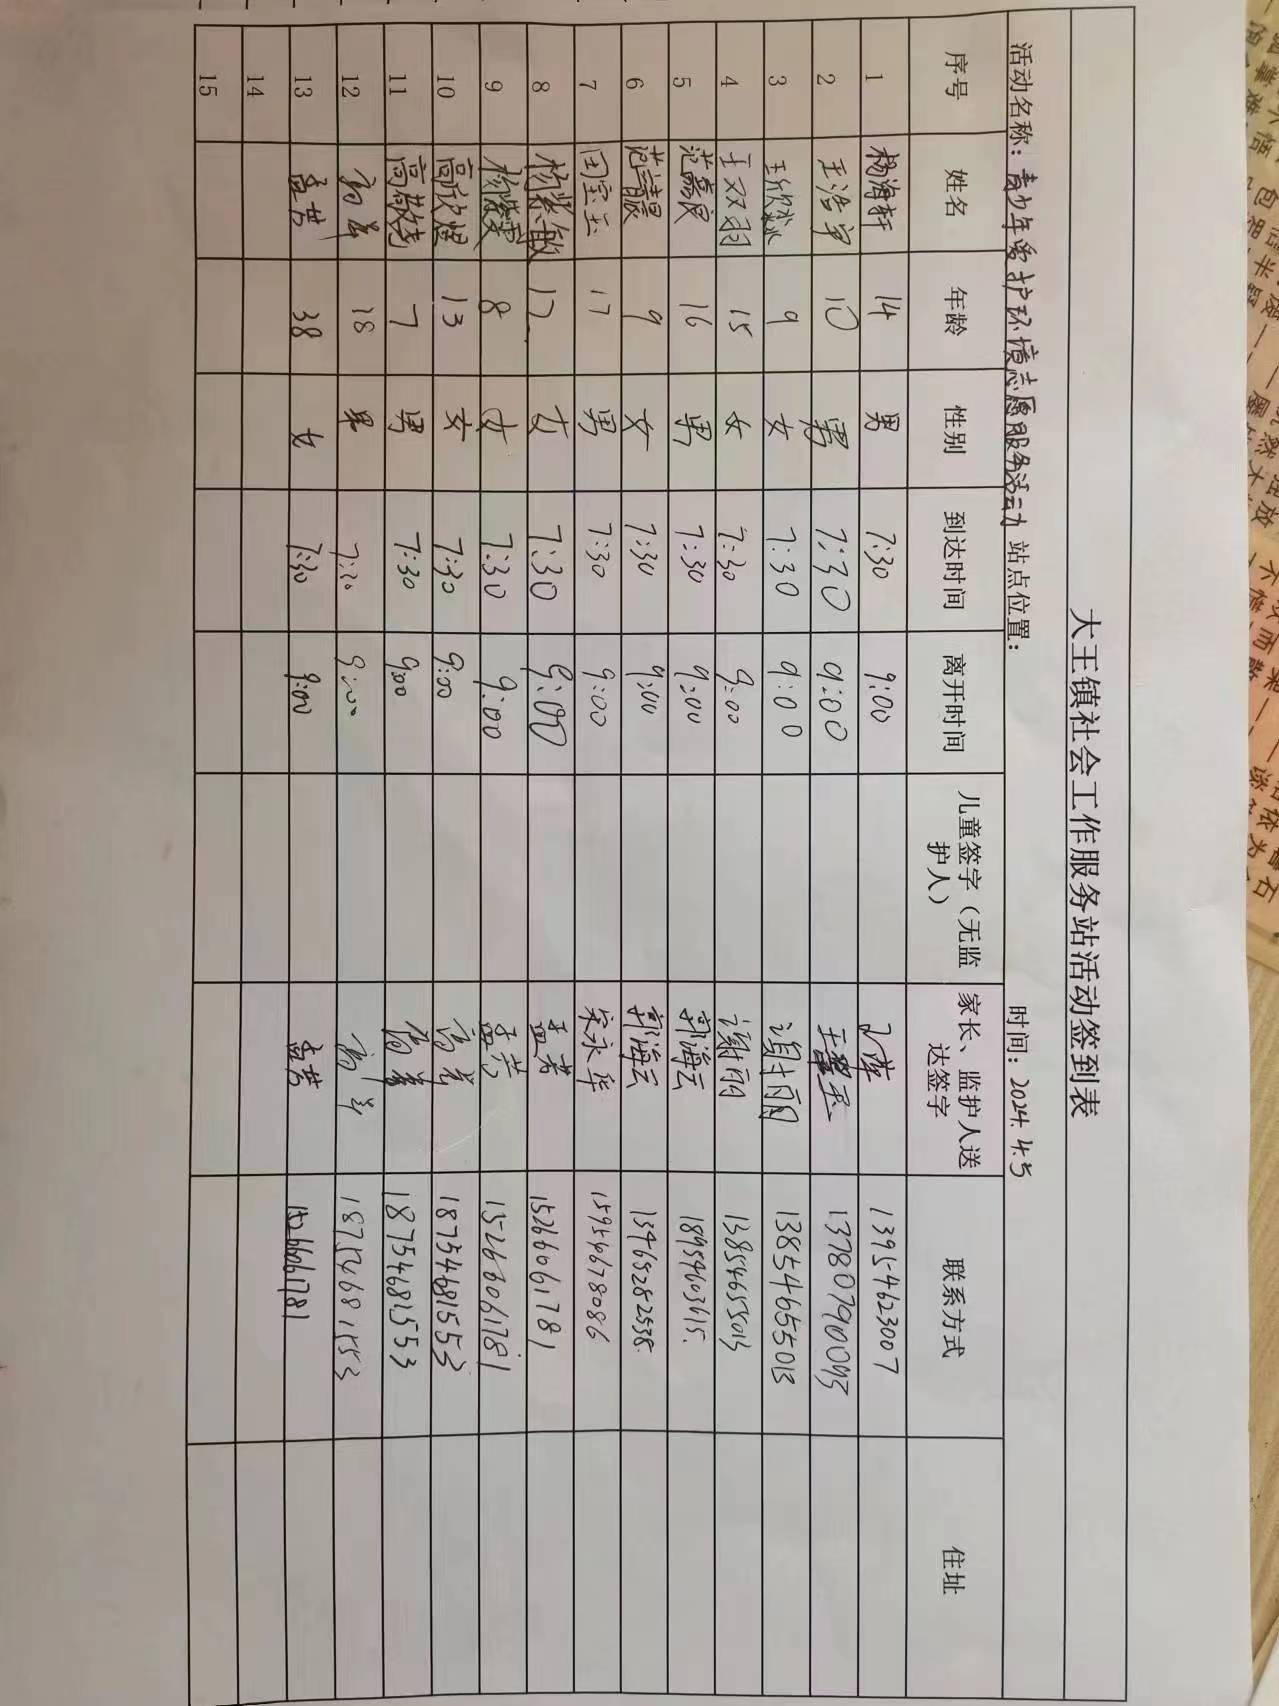 大王镇社会工作服务站活动签到表
活动名称：青少年爱护环境志愿服务活动 站点位置： 时间：2024.4.5
序号 姓名 年龄 性别 到达时间 离开时间 儿童签字（无监护人） 家长、监护人送达签字 联系方式 住址
1 杨海轩 14 男 7:30 9:00 13954623007
2 王浩宇 10 男 7:30 9:00 13780790093
3 王欣淼 9 女 7:30 9:00 谢丽 13854655013
4 王双羽 15 女 7:30 9:00 谢丽 13854655013
5 范嘉宸 16 男 7:30 9:00 郭海云 18954603615
6 9 女 7:30 9:00 郭海云 13465282538
7 田宝玉 17 男 7:30 9:00 宋永华 15954678086
8 杨紫敏 12 女 7:30 9:00 孟芳 15266061781
9 8 女 7:30 9:00 孟芳 15266061781
10 高欣煜 13 女 7:30 9:00 18754681553
11 7 男 7:30 9:00 18754681553
12 18 男 7:30 9:00 18754681553
13 孟芳 38 女 7:30 9:00 孟芳 15266061781
14
15